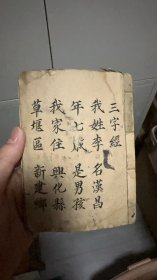 三字經
我姓李 名漢昌
年七歲 是男孩
我家住 興化縣
草堰區 新建鄉